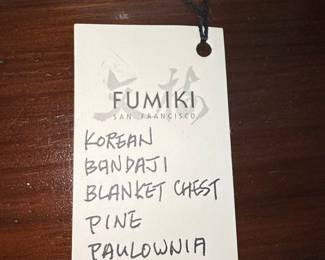 FUMIKI
SAN FRANCISCO
KOREAN
BANDAJI
BLANKET CHEST
PINE
PAULOWNIA